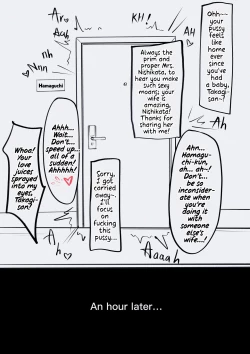 Oh---
your
pussy
feels
like
home
ever
since
you've
had a
baby,
Takagi
-san~!
KH!
AH
Ar
Aah
nh
Nnn
Always the
prim and
proper Mrs.
Nishikata,
to hear you
make such
sexy
moans; your
wife is
amazing,
Nishikata!
Thanks for
sharing her
with me!
Hamaguchi
Ah
Ahn...
Hamagu
chi-kun,
ah... ah~!
Don't...
be so
inconsider-
ate when
you're
doing it
with
someone
else's
wife...!
Ahhh...
Wait...
Don't...
speed up...
all of a
sudden!
Ahhhhh!
Sorry,
I got
carried
away~
I'll
focus
on
fucking
this
pussy....
Whoa!
Your
love
juices
sprayed
into my
eyes,
Takagi-
san!
Ah
Aaaah
An hour later...